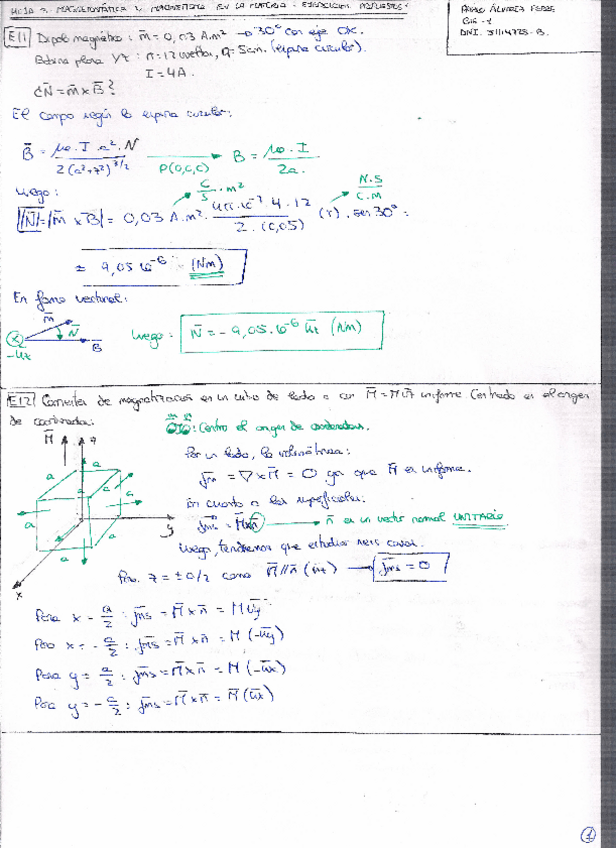 MAGNETOSTÁTICA Y MAGNETISMO EN LA MATERIA: EJERCICIOS PROPUESTOS:
E11 Dipolo magnético: m̄ = 0,03 A.m² → 30° con eje OX.
Bobina plana YZ: n = 12 vueltas, a = 5cm. (espira circular).
I = 4A.
¿N̄ = m̄ x B̄?
El campo según la espira circular:
B̄ = μ₀ · I · a² · N / 2(a²+z²)^3/2 → P(0,0,0) B = μ₀ · I / 2a.
Luego: C/S · m² N.S/C.M
|N̄| = |m̄ x B̄| = 0,03 A.m² · 4π·10⁻⁷ 4 · 12 / 2 · (0,05) (T) · sen 30° =
= 9,05 10⁻⁶ (Nm)
En forma vectorial:
m̄ N̄ B̄ -ūz
Luego: N̄ = - 9,05 · 10⁻⁶ ūz (Nm)
E12 Corrientes de magnetización en un cubo de lado a con M̄ = M ūz uniforme. Centrado en el origen
de coordenadas:
OJO: Centro el origen de coordenadas.
M̄ z a a a a a a y x
Por un lado, la volumétrica:
j̄m = ∇ x M̄ = 0 ya que M̄ es uniforme.
En cuanto a las superficiales:
j̄ms = M̄ x n̄ → n̄ es un vector normal UNITARIO
Luego, tendremos que estudiar seis casos.
Para z = ± a/2 como M̄ // n̄ (ūz) → j̄ms = 0
Para x = a/2 : j̄ms = M̄ x n̄ = M ūy
Para x = - a/2 : j̄ms = M̄ x n̄ = M (-ūy)
Para y = a/2 : j̄ms = M̄ x n̄ = M (-ūx)
Para y = - a/2 : j̄ms = M̄ x n̄ = M (ūx)
1